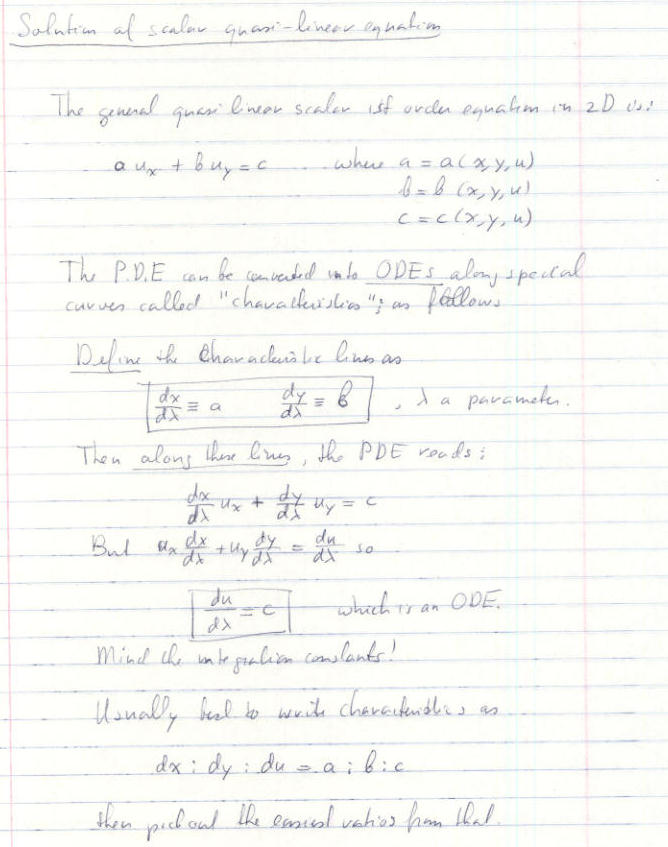 Solution of scalar quasi-linear equation
The general quasi linear scalar 1st order equation in 2D is:
a u_x + b u_y = c where a = a(x,y,u)
b = b (x,y,u)
c = c(x,y,u)
The P.D.E can be converted into ODEs along special
curves called "characteristics"; as follows
Define the Characteristic lines as
dx/dλ ≡ a dy/dλ ≡ b , λ a parameter.
Then along these lines, the PDE reads:
dx/dλ u_x + dy/dλ u_y = c
But u_x dx/dλ + u_y dy/dλ = du/dλ so
du/dλ = c which is an ODE.
Mind the integration constants!
Usually best to write characteristics as
dx : dy : du = a : b : c
then pick out the easiest ratios from that.